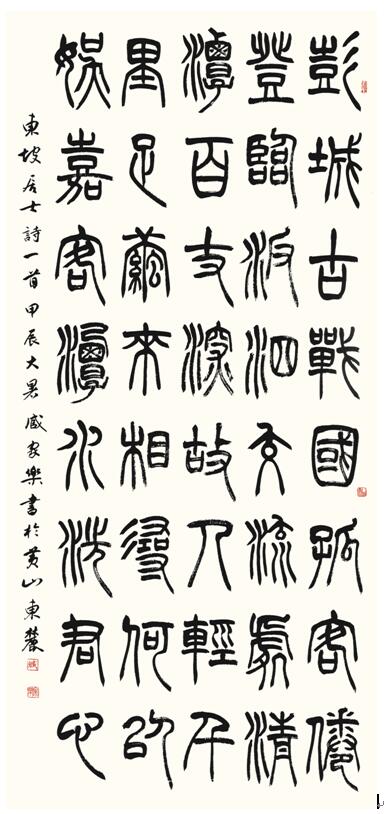 彭城古戰國孤客倦
登臨汳泗交流處清
潭百丈深故人輕千
里足繭來相尋何以
娛嘉客潭水洗君心
東坡居士詩一首甲辰大暑家樂書於黃山東麓